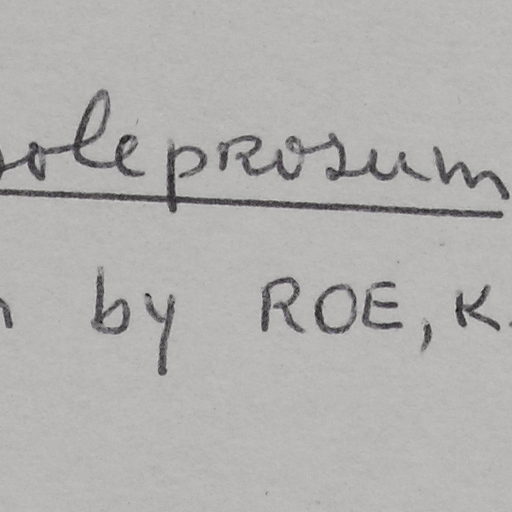 oleprosum
by ROE, K.